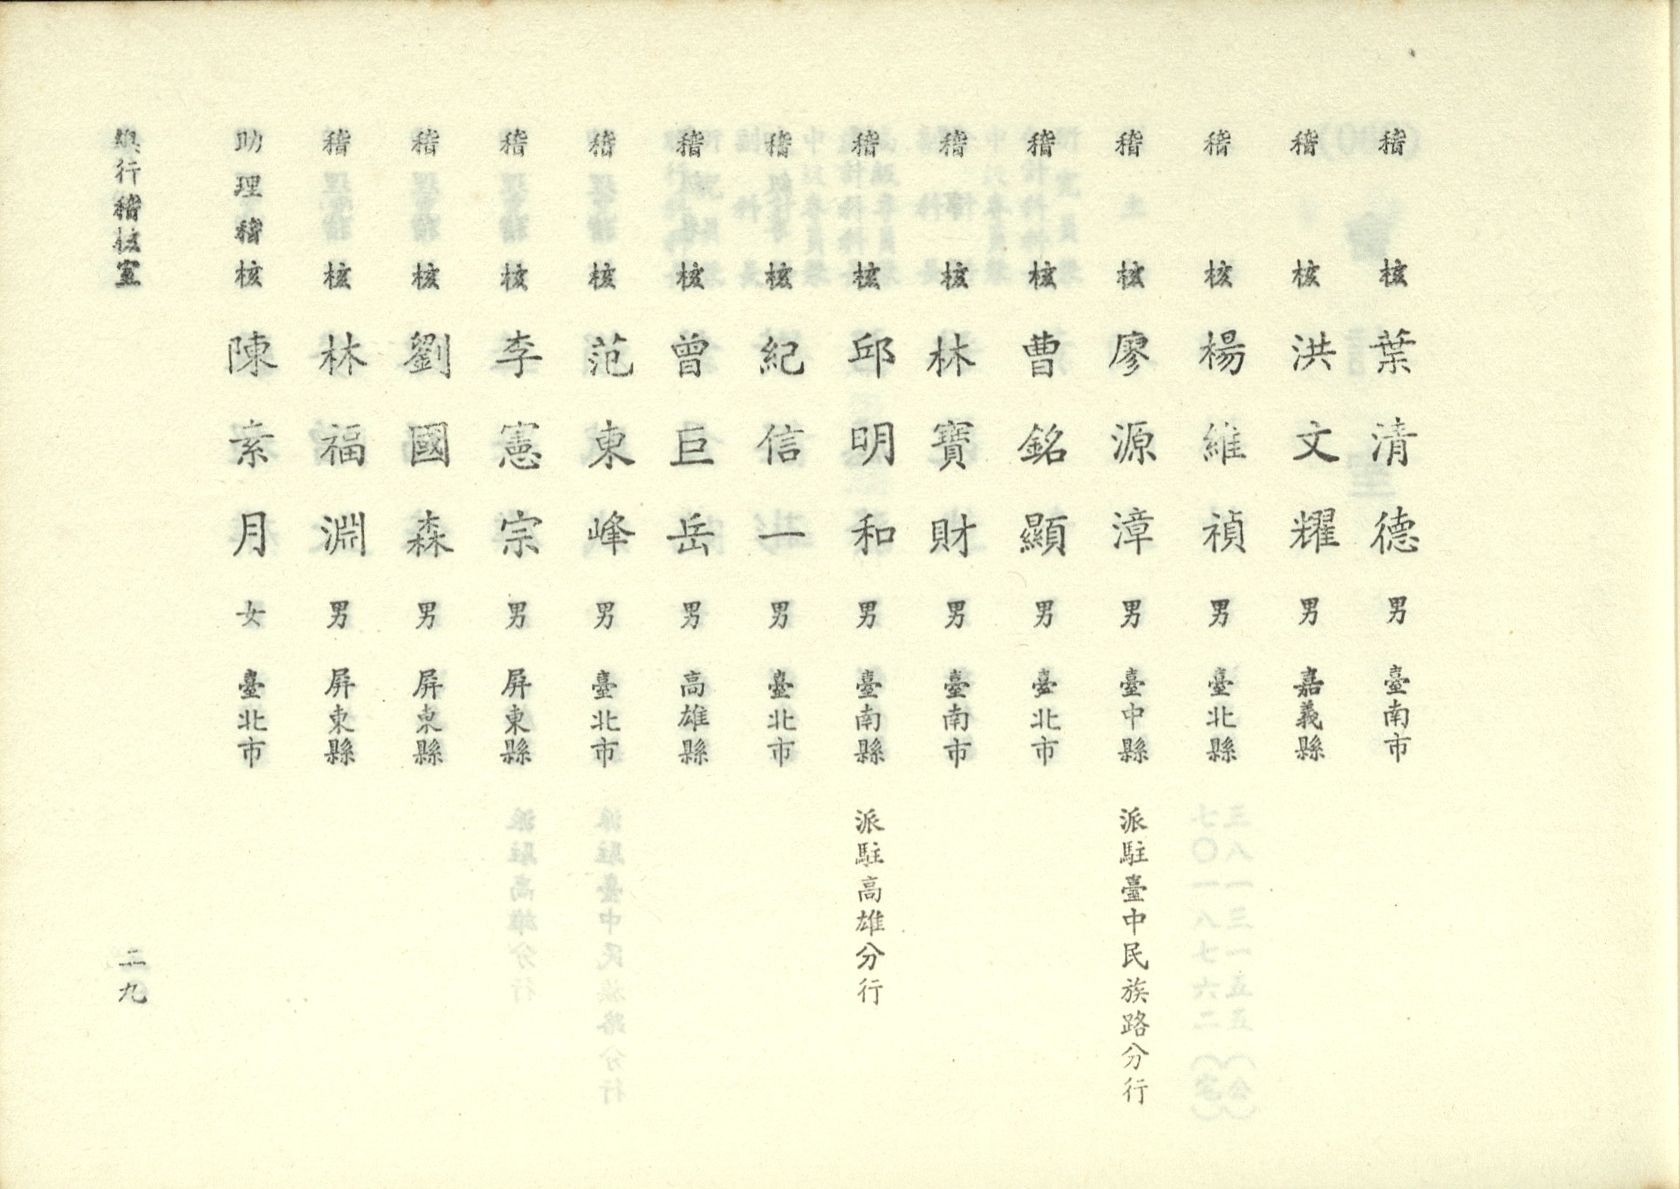 稽核 葉清德 男 臺南市
稽核 洪文耀 男 嘉義縣
稽核 楊維禎 男 臺北縣
稽核 廖源漳 男 臺中縣 派駐臺中民族路分行
稽核 曹銘顯 男 臺北市
稽核 林寶財 男 臺南市
稽核 邱明和 男 臺南縣 派駐高雄分行
稽核 紀信一 男 臺北市
稽核 曾巨岳 男 高雄縣
稽核 范東峰 男 臺北市
稽核 李憲宗 男 屏東縣
稽核 劉國森 男 屏東縣
稽核 林福淵 男 屏東縣
助理稽核 陳素月 女 臺北市
總行稽核室
二九